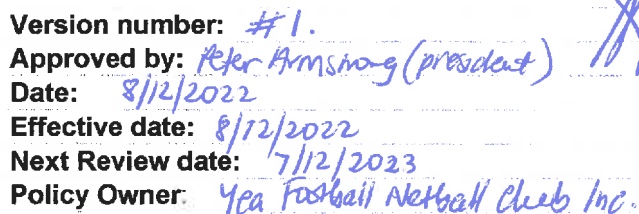 Version number: #1.
Approved by: Peter Armstrong (president)
Date: 8/12/2022
Effective date: 8/12/2022
Next Review date: 7/12/2023
Policy Owner: Yea Football Netball Club Inc.